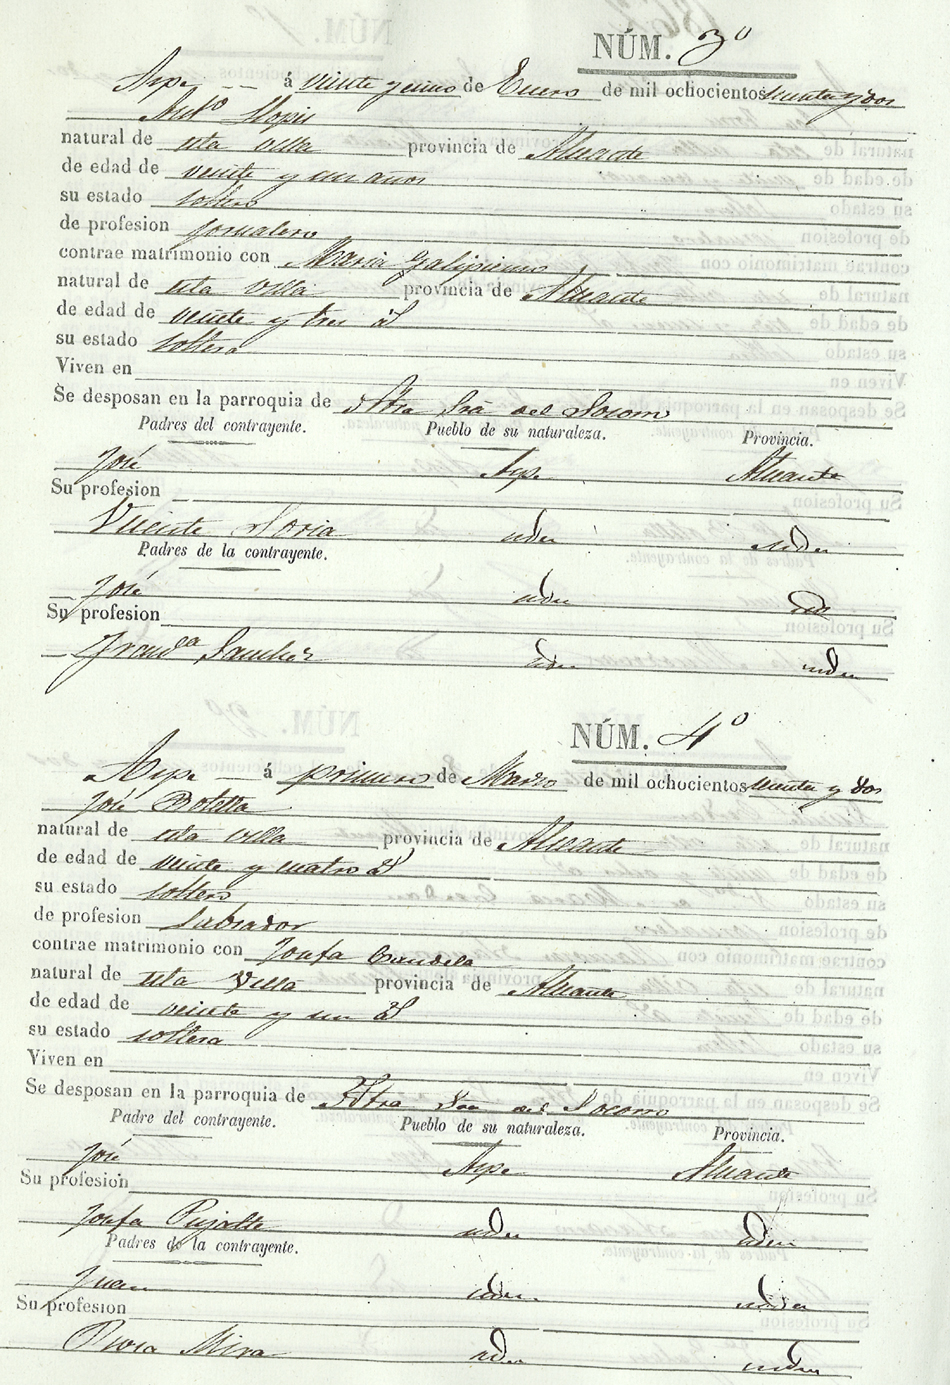 NÚM. 3º
Aspe á veinte y cinco de Enero de mil ochocientos y dos
Antº Llopis
natural de esta villa provincia de Alicante
de edad de veinte y un años
su estado soltero
de profesion jornalero
contrae matrimonio con Maria Galipienso
natural de esta villa provincia de Alicante
de edad de veinte y tres aˢ
su estado soltera
Viven en
Se desposan en la parroquia de Ntra Sra del Socorro
Padres del contrayente. Pueblo de su naturaleza. Provincia.
José Aspe Alicante
Su profesion
Vicenta Soria idem idem
Padres de la contrayente.
José idem id
Su profesion
Francᵃ Sanchez idem idem
NÚM. 4º
Aspe á primero de Marzo de mil ochocientos y dos
José Botella
natural de esta villa provincia de Alicante
de edad de veinte y cuatro aˢ
su estado soltero
de profesion Labrador
contrae matrimonio con Josefa Candela
natural de esta Villa provincia de Alicante
de edad de veinte y un aˢ
su estado soltera
Viven en
Se desposan en la parroquia de Ntra Sra del Socorro
Padre del contrayente. Pueblo de su naturaleza. Provincia.
José Aspe Alicante
Su profesion
Josefa Pujalte idem idem
Padres de la contrayente.
Juan idem idem
Su profesion
Mira idem idem